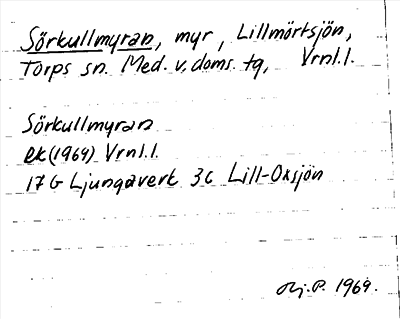 Sörkullmyran, myr, Lillmörtsjön,
Torps sn. Med. v. doms. tg, Vrnl.l.
Sörkullmyran
ek (1969) Vrnl.l.
17 G Ljungaverk 3c Lill-Oxsjön
1969.